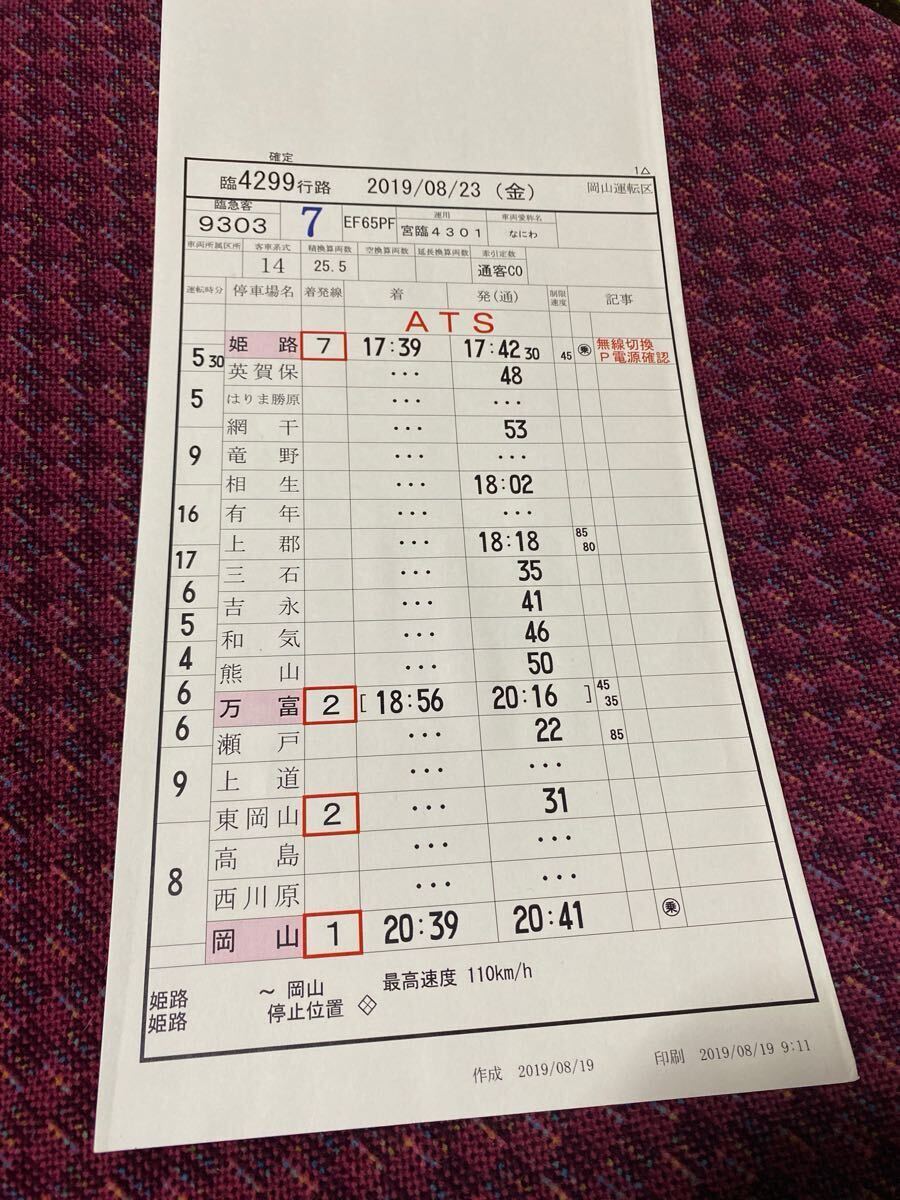 確定
1△
臨4299行路 2019/08/23 (金) 岡山運転区
臨急客 9303 7 EF65PF 運用 宮臨4301 車両愛称名 なにわ
車両所属区所 客車系式 積換算両数 空換算両数 延長換算両数 牽引定数
14 25.5 通客C0
運転時分 停車場名 着発線 着 発(通) 制限速度 記事
ATS
姫路 7 17:39 17:42 30 45 乗 無線切換
P電源確認
5 30
英賀保 ・・・ 48
5
はりま勝原 ・・・ ・・・
網干 ・・・ 53
9
竜野 ・・・ ・・・
相生 ・・・ 18:02
16
有年 ・・・ ・・・
上郡 ・・・ 18:18 85 80
17
三石 ・・・ 35
6
吉永 ・・・ 41
5
和気 ・・・ 46
4
熊山 ・・・ 50
6
万富 2 [18:56 20:16 ] 45 35
6
瀬戸 ・・・ 22 85
9
上道 ・・・ ・・・
東岡山 2 ・・・ 31
8
高島 ・・・ ・・・
西川原 ・・・ ・・・
岡山 1 20:39 20:41 乗
姫路 ～ 岡山 最高速度 110km/h
姫路 停止位置
作成 2019/08/19 印刷 2019/08/19 9:11